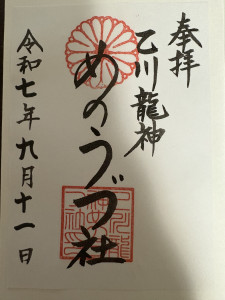 奉拝
乙川龍神
めのうづ社
令和七年九月十一日